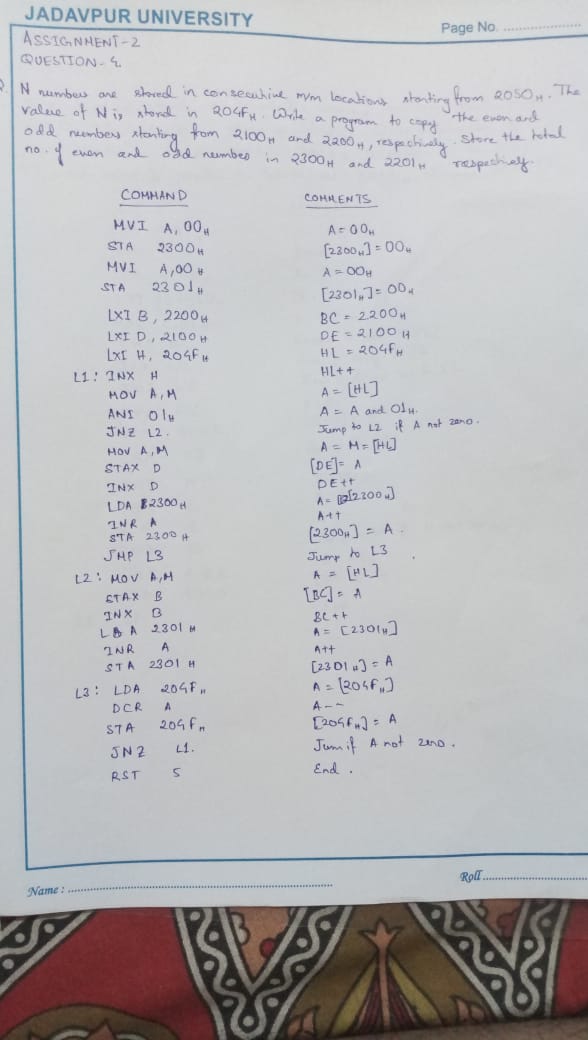 JADAVPUR UNIVERSITY
Page No. ....................
ASSIGNMENT-2
QUESTION-4.
N numbers are stored in consecutive m/m locations starting from 2050H. The
value of N is stored in 204FH. Write a program to copy the even and
odd numbers starting from 2100H and 2200H, respectively. Store the total
no. of even and odd number in 2300H and 2201H respectively.
COMMAND COMMENTS
MVI A, 00H A = 00H
STA 2300H [2300H] = 00H
MVI A,00H A = 00H
STA 2301H [2301H] = 00H
LXI B, 2200H BC = 2200H
LXI D, 2100H DE = 2100H
LXI H, 204FH HL = 204FH
L1: INX H HL++
MOV A,M A = [HL]
ANI 01H A = A and 01H.
JNZ L2. Jump to L2 if A not zero.
MOV A,M A = M = [HL]
STAX D [DE] = A
INX D DE++
LDA 2300H A = [2300H]
INR A A++
STA 2300H [2300H] = A.
JMP L3 Jump to L3
L2: MOV A,M A = [HL]
STAX B [BC] = A
INX B BC++
LDA 2301H A = [2301H]
INR A A++
STA 2301H [2301H] = A
L3: LDA 204FH A = [204FH]
DCR A A--
STA 204FH [204FH] = A
JNZ L1. Jum if A not zero.
RST 5 End.
Name : ....................
Roll ....................